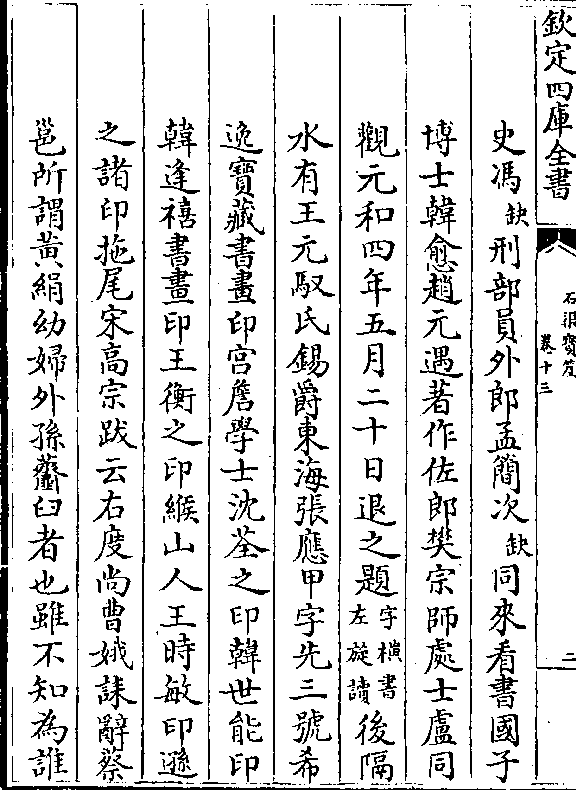 欽定四庫全書
石渠寶笈
卷十三
二
史馮缺刑部員外郎孟簡次缺同來看書國子
博士韓愈趙元遇著作佐郎樊宗師處士盧同
觀元和四年五月二十日退之題字橫書左旋讀後隔
水有王元馭氏錫爵東海張應甲字先三號希
逸寶藏書畫印宫詹學士沈荃之印韓世能印
韓逢禧書畫印王衡之印緱山人王時敏印遜
之諸印拖尾宋高宗跋云右度尚曹娥誄辭蔡
邕所謂黃絹幼婦外孫虀臼者也雖不知為誰